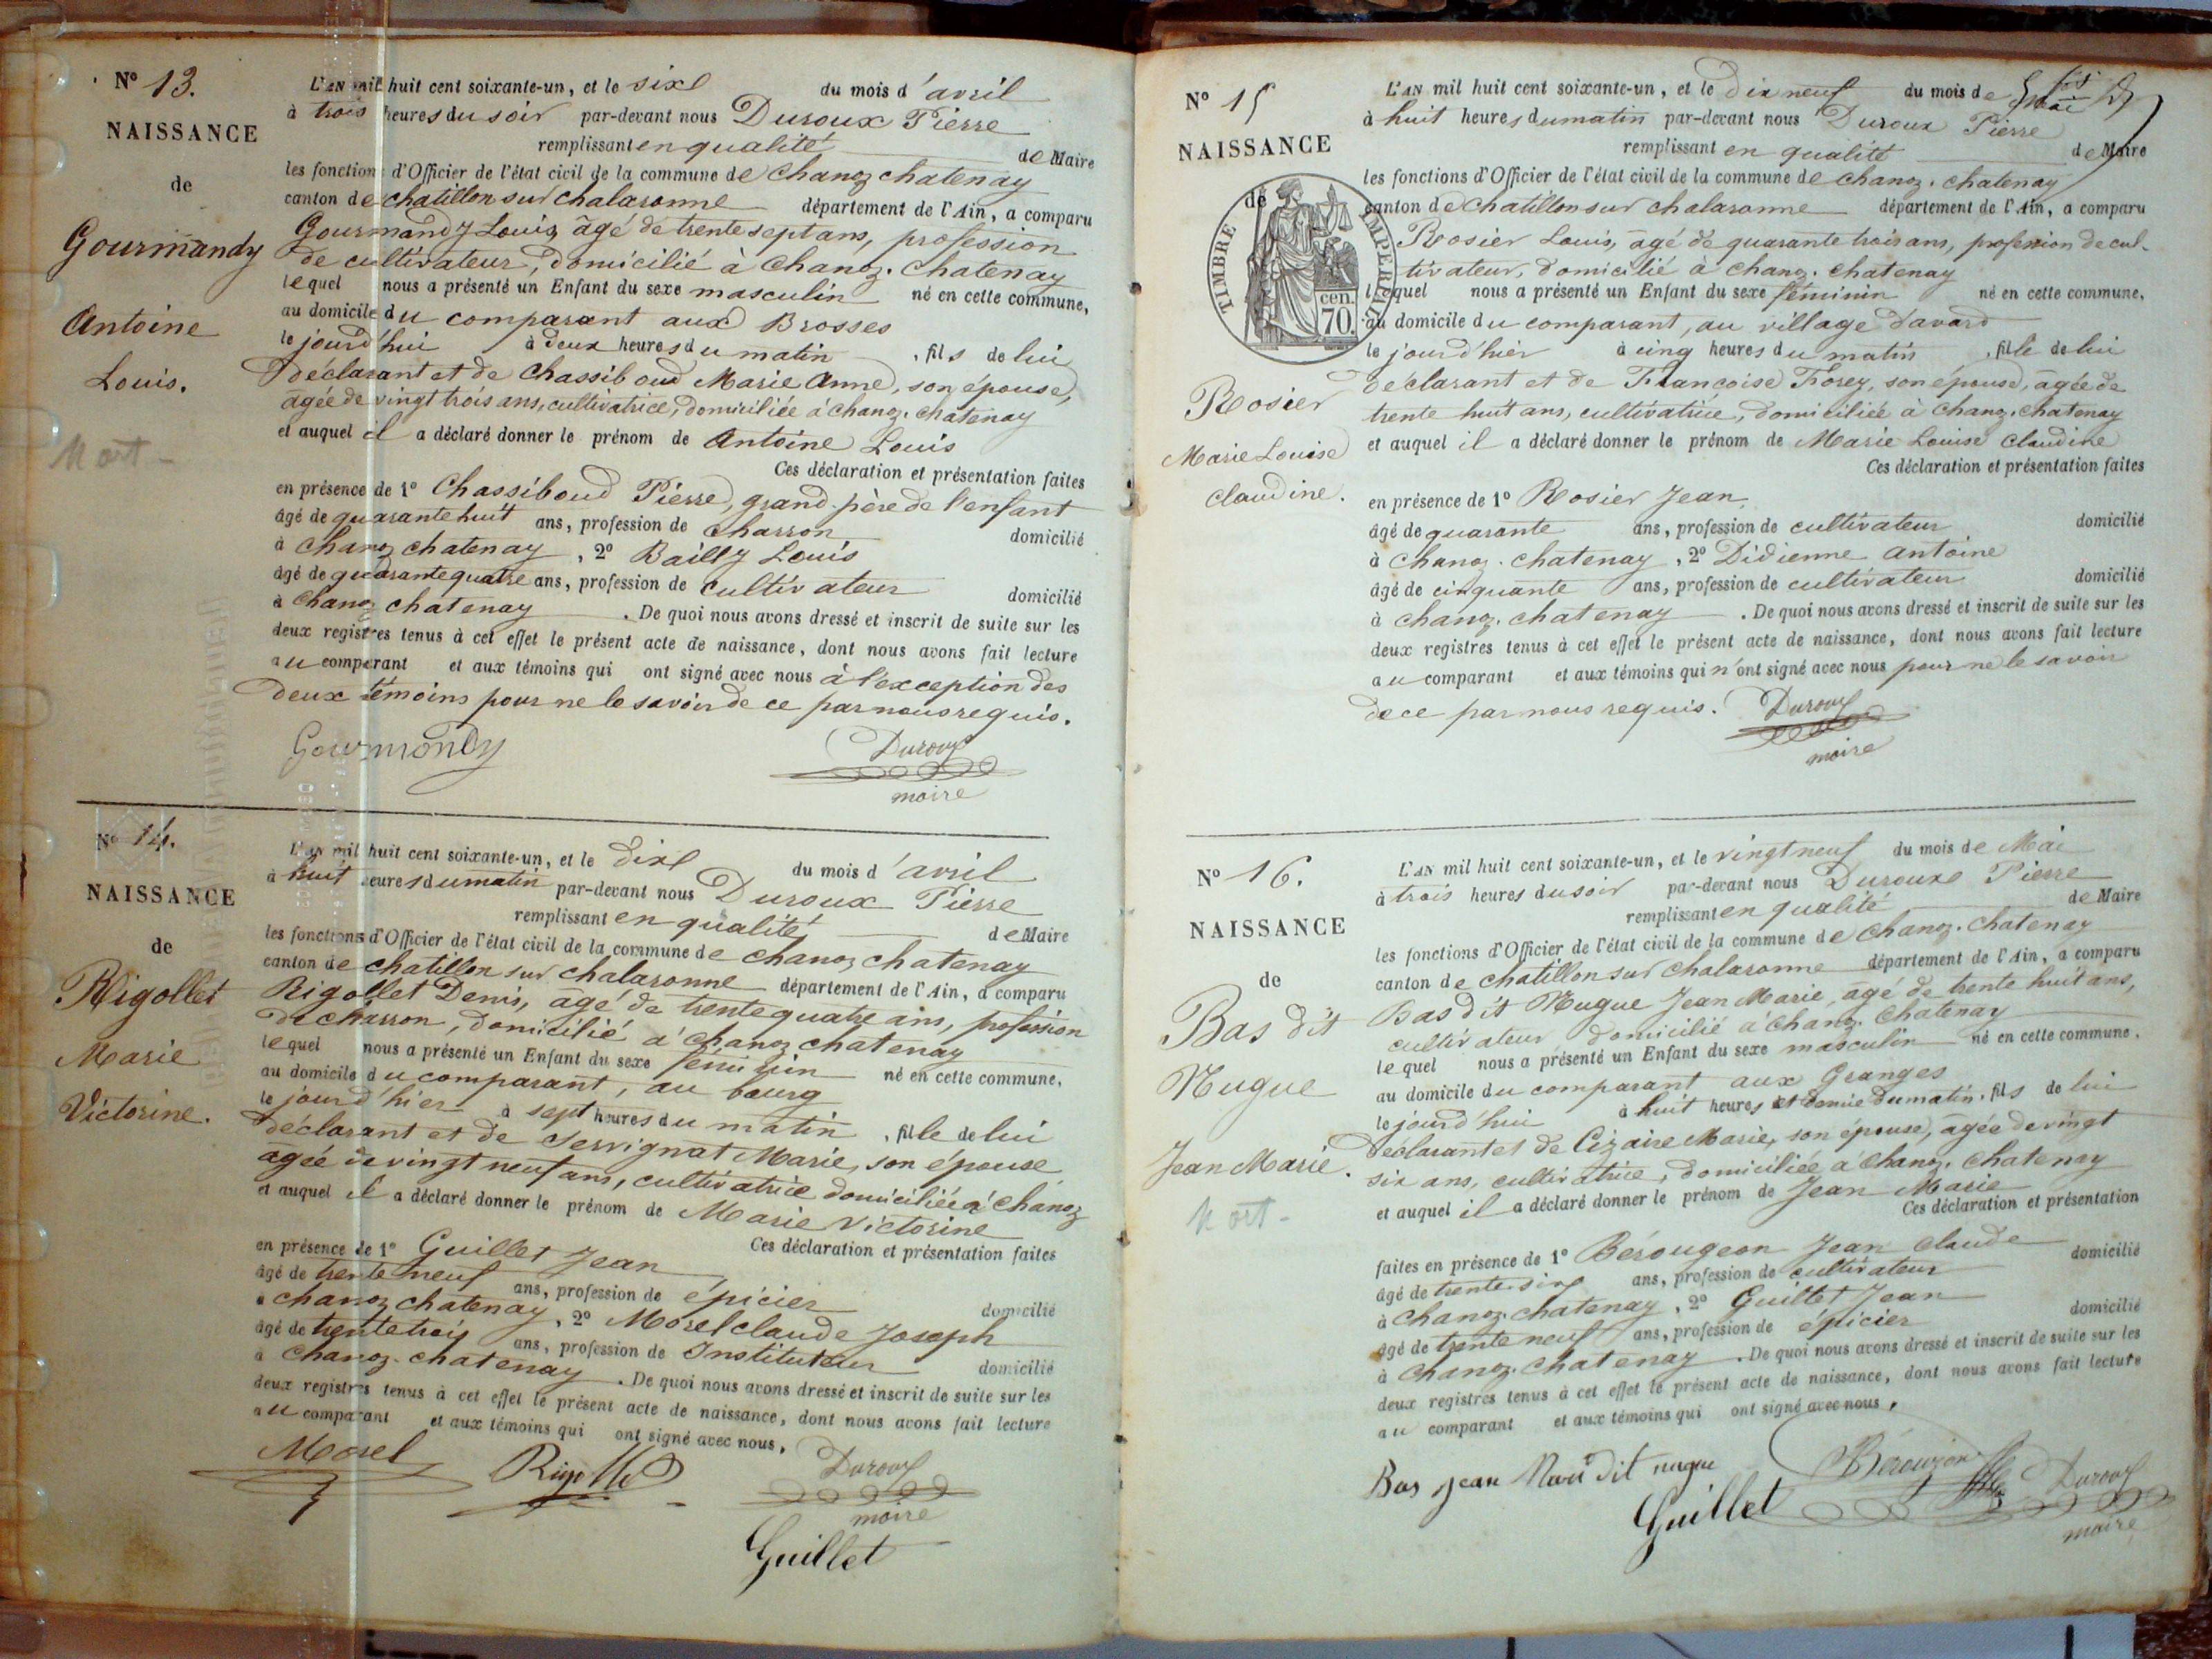 N° 13.
NAISSANCE
de
Gourmandy
Antoine
Louis.
Mort -
L'AN mil huit cent soixante-un, et le six du mois d'avril
à trois heures du soir par-devant nous Duroux Pierre
remplissant en qualité de Maire
les fonctions d'Officier de l'état civil de la commune de Chanoz chatenay
canton de chatillon sur chalaronne département de l'Ain, a comparu
Gourmandy Louis âgé de trente sept ans, profession
de cultivateur, domicilié à Chanoz. Chatenay
lequel nous a présenté un Enfant du sexe masculin né en cette commune,
au domicile du comparant aux Brosses
le jourd'hui à deux heures du matin, fils de lui
déclarant et de Chassiboud Marie Anne, son épouse,
âgée de vingt trois ans, cultivatrice, domiciliée à Chanoz. chatenay
et auquel il a déclaré donner le prénom de Antoine Louis
Ces déclaration et présentation faites
en présence de 1° Chassiboud Pierre, grand-père de l'enfant
âgé de quarante huit ans, profession de Charron domicilié
à Chanoz chatenay, 2° Bailly Louis
âgé de quarante quatre ans, profession de Cultivateur domicilié
à Chanoz chatenay. De quoi nous avons dressé et inscrit de suite sur les
deux registres tenus à cet effet le présent acte de naissance, dont nous avons fait lecture
au comparant et aux témoins qui ont signé avec nous à l'exception des
deux témoins pour ne le savoir de ce par nous requis.
Gourmandy
Duroux
maire
N° 14.
NAISSANCE
de
Rigollet
Marie
Victorine.
L'AN mil huit cent soixante-un, et le dix du mois d'avril
à huit heures du matin par-devant nous Duroux Pierre
remplissant en qualité de Maire
les fonctions d'Officier de l'état civil de la commune de Chanoz chatenay
canton de chatillon sur chalaronne département de l'Ain, a comparu
Rigollet Denis, âgé de trente quatre ans, profession
de charron, domicilié à Chanoz chatenay
lequel nous a présenté un Enfant du sexe féminin né en cette commune,
au domicile du comparant, au bourg
le jourd'hier à sept heures du matin, fille de lui
déclarant et de Servignat Marie, son épouse
âgée de vingt neuf ans, cultivatrice domiciliée à Chanoz
et auquel il a déclaré donner le prénom de Marie Victorine
Ces déclaration et présentation faites
en présence de 1° Guillet Jean
âgé de trente neuf ans, profession de épicier domicilié
à chanoz chatenay, 2° Morel claude Joseph
âgé de trente trois ans, profession de Instituteur domicilié
à Chanoz. chatenay. De quoi nous avons dressé et inscrit de suite sur les
deux registres tenus à cet effet le présent acte de naissance, dont nous avons fait lecture
au comparant et aux témoins qui ont signé avec nous.
Morel Rigollet Duroux
maire
Guillet
N° 15
NAISSANCE
de
TIMBRE IMPERIAL
cen. 70.
Rosier
Marie Louise
Claudine.
L'AN mil huit cent soixante-un, et le dix neuf du mois de mai
à huit heures du matin par-devant nous Duroux Pierre
remplissant en qualité de Maire
les fonctions d'Officier de l'état civil de la commune de Chanoz. Chatenay
canton de Chatillon sur chalaronne département de l'Ain, a comparu
Rosier Louis, âgé de quarante trois ans, profession de cul-
tivateur, domicilié à Chanoz. chatenay
lequel nous a présenté un Enfant du sexe féminin né en cette commune,
au domicile du comparant, au village davard
le jourd'hier à cinq heures du matin, fille de lui
déclarant et de Francoise Forey, son épouse, âgée de
trente huit ans, cultivatrice, domiciliée à Chanoz. Chatenay
et auquel il a déclaré donner le prénom de Marie Louise Claudine
Ces déclaration et présentation faites
en présence de 1° Rosier Jean
âgé de quarante ans, profession de cultivateur domicilié
à Chanoz. chatenay, 2° Didienne Antoine
âgé de cinquante ans, profession de cultivateur domicilié
à Chanoz. chatenay. De quoi nous avons dressé et inscrit de suite sur les
deux registres tenus à cet effet le présent acte de naissance, dont nous avons fait lecture
au comparant et aux témoins qui n'ont signé avec nous pour ne le savoir
de ce par nous requis. Duroux
maire
N° 16.
NAISSANCE
de
Bas dit
Nugue
Jean Marie.
Mort -
L'AN mil huit cent soixante-un, et le vingt neuf du mois de Mai
à trois heures du soir par-devant nous Duroux Pierre
remplissant en qualité de Maire
les fonctions d'Officier de l'état civil de la commune de Chanoz. Chatenay
canton de Chatillon sur Chalaronne département de l'Ain, a comparu
Bas dit Nugue Jean Marie, âgé de trente huit ans,
cultivateur domicilié à Chanoz. Chatenay
lequel nous a présenté un Enfant du sexe masculin né en cette commune.
au domicile du comparant aux Granges
le jourd'hui à huit heures et demie du matin. fils de lui
déclarant et de Cizaire Marie, son épouse, âgée de vingt
six ans, cultivatrice, domiciliée à Chanoz. Chatenay
et auquel il a déclaré donner le prénom de Jean Marie
Ces déclaration et présentation
faites en présence de 1° Bérougeon Jean Claude
âgé de trente six ans, profession de cultivateur domicilié
à Chanoz. chatenay, 2° Guillet Jean
âgé de trente neuf ans, profession de épicier domicilié
à Chanoz. chatenay. De quoi nous avons dressé et inscrit de suite sur les
deux registres tenus à cet effet le présent acte de naissance, dont nous avons fait lecture
au comparant et aux témoins qui ont signé avec nous.
Bas jean Mari dit nugue Béroujon Duroux
Guillet maire